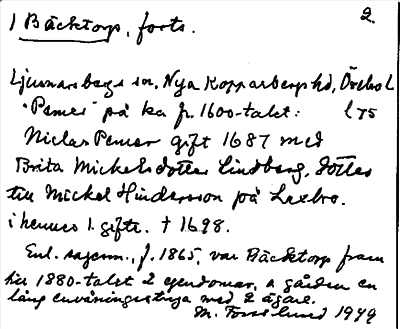 2.
1 Bäcktorp, forts.
Ljusnarsbergs sn, Nya Kopparbergs hd, Örebro L
"Pemer" på ka fr. 1600-talet: L T5
Niclas Pemer gift 1687 med
Brita Mickelsdotter Lindberg, dotter
till Mickel Hindersson på Laxbro.
i hennes 1. gifte. † 1698.
Enl. sagesm., f. 1865, var Bäcktorp fram
till 1880-talet 2 egendomar, a gården en
lång envåningsstuga med 2 ägare.
M. Forslund 1949